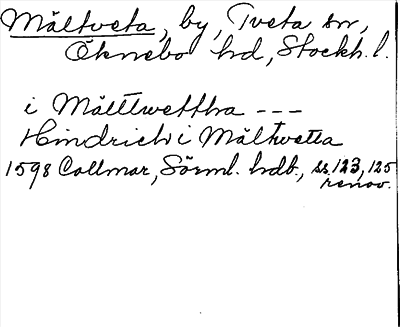 Mältveta, by, Tveta sn,
Öknebo hd, Stockh. l.
i Mälttwettha ---
Hindrich i Mältwetta
1598 Collmar, Sörml. hdb., ss. 123, 125
renov.